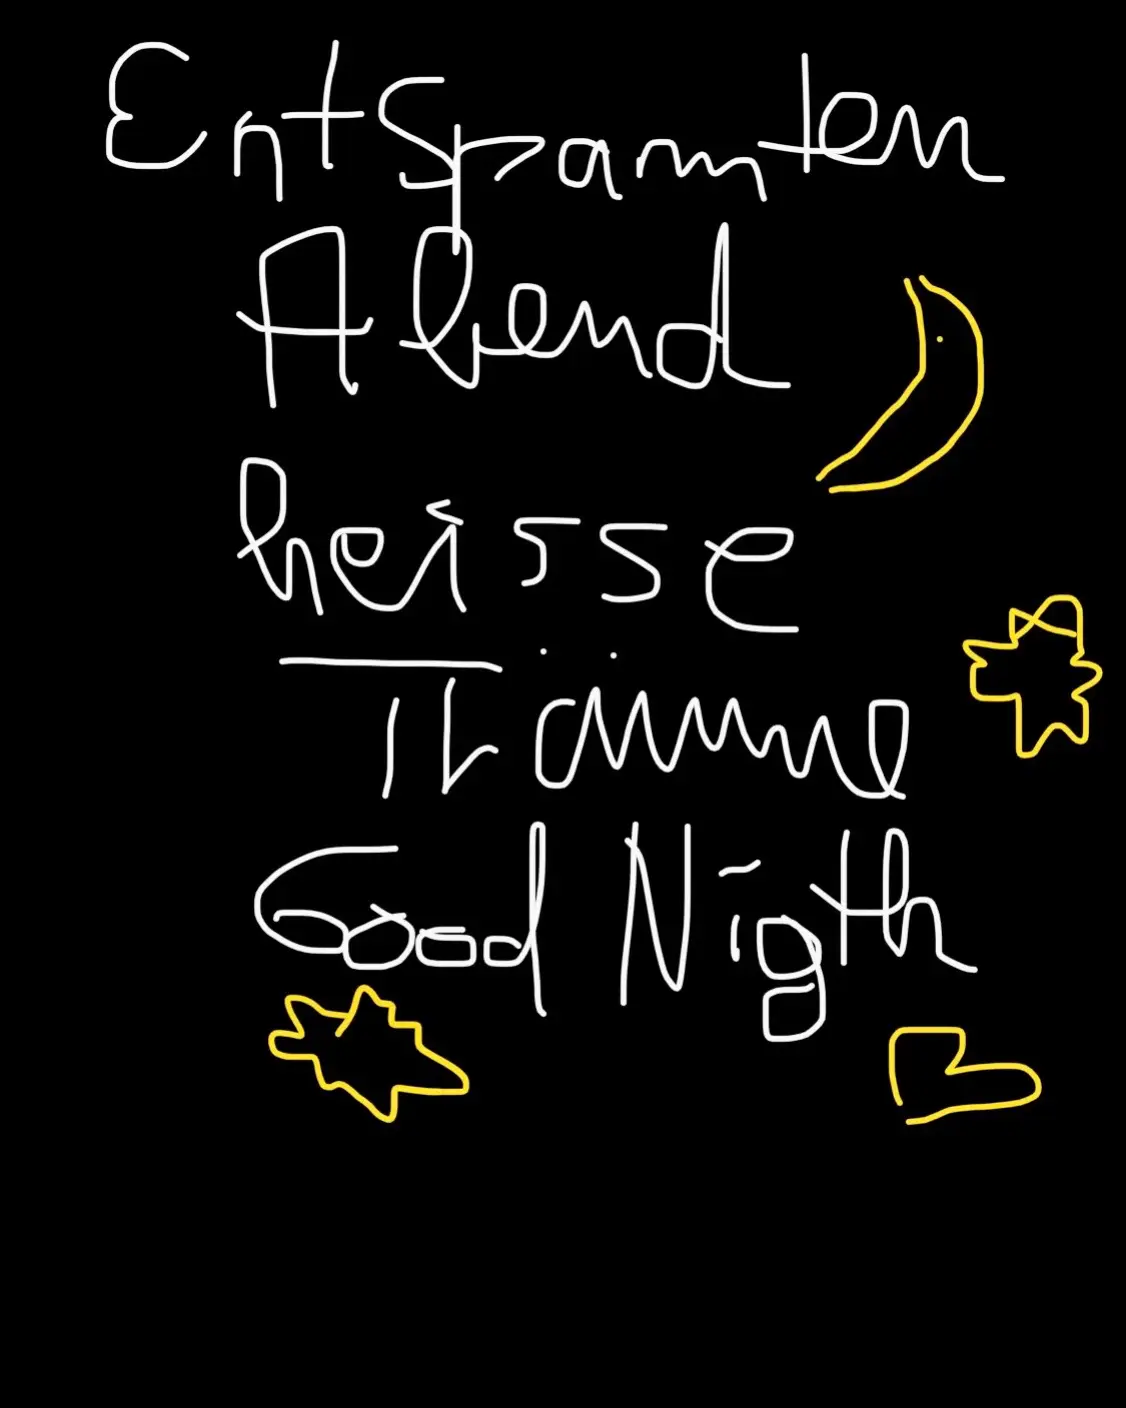 Entspannten
Abend
heisse
Träume
Good Nigth